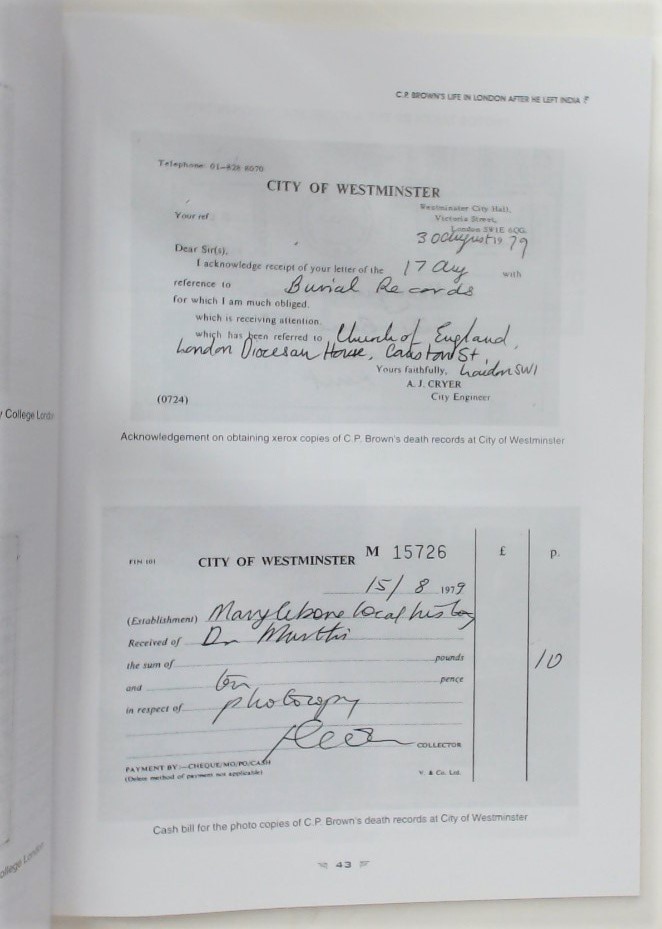 C.P. BROWN'S LIFE IN LONDON AFTER HE LEFT INDIA
Telephone: 01-828 8070
CITY OF WESTMINSTER
Westminster City Hall,
Victoria Street,
London SW1E 6QG.
Your ref
30 August 1979
Dear Sir(s),
I acknowledge receipt of your letter of the 17 Aug with
reference to Burial Records
for which I am much obliged.
which is receiving attention
which has been referred to Church of England,
London Diocesan House, Causton St,
Yours faithfully, London SW1
A. J. CRYER
City Engineer
(0724)
y College London
Acknowledgement on obtaining xerox copies of C.P. Brown's death records at City of Westminster
FIN 101 CITY OF WESTMINSTER M 15726 £ p.
15/8 1979
(Establishment) Marylebone local history
Received of Dr Murthi
the sum of pounds
10
and ten pence
in respect of photocopy
COLLECTOR
PAYMENT BY:—CHEQUE/MO/PO/CASH
(Delete method of payment not applicable)
V. & Co. Ltd.
Cash bill for the photo copies of C.P. Brown's death records at City of Westminster
ollege London
43